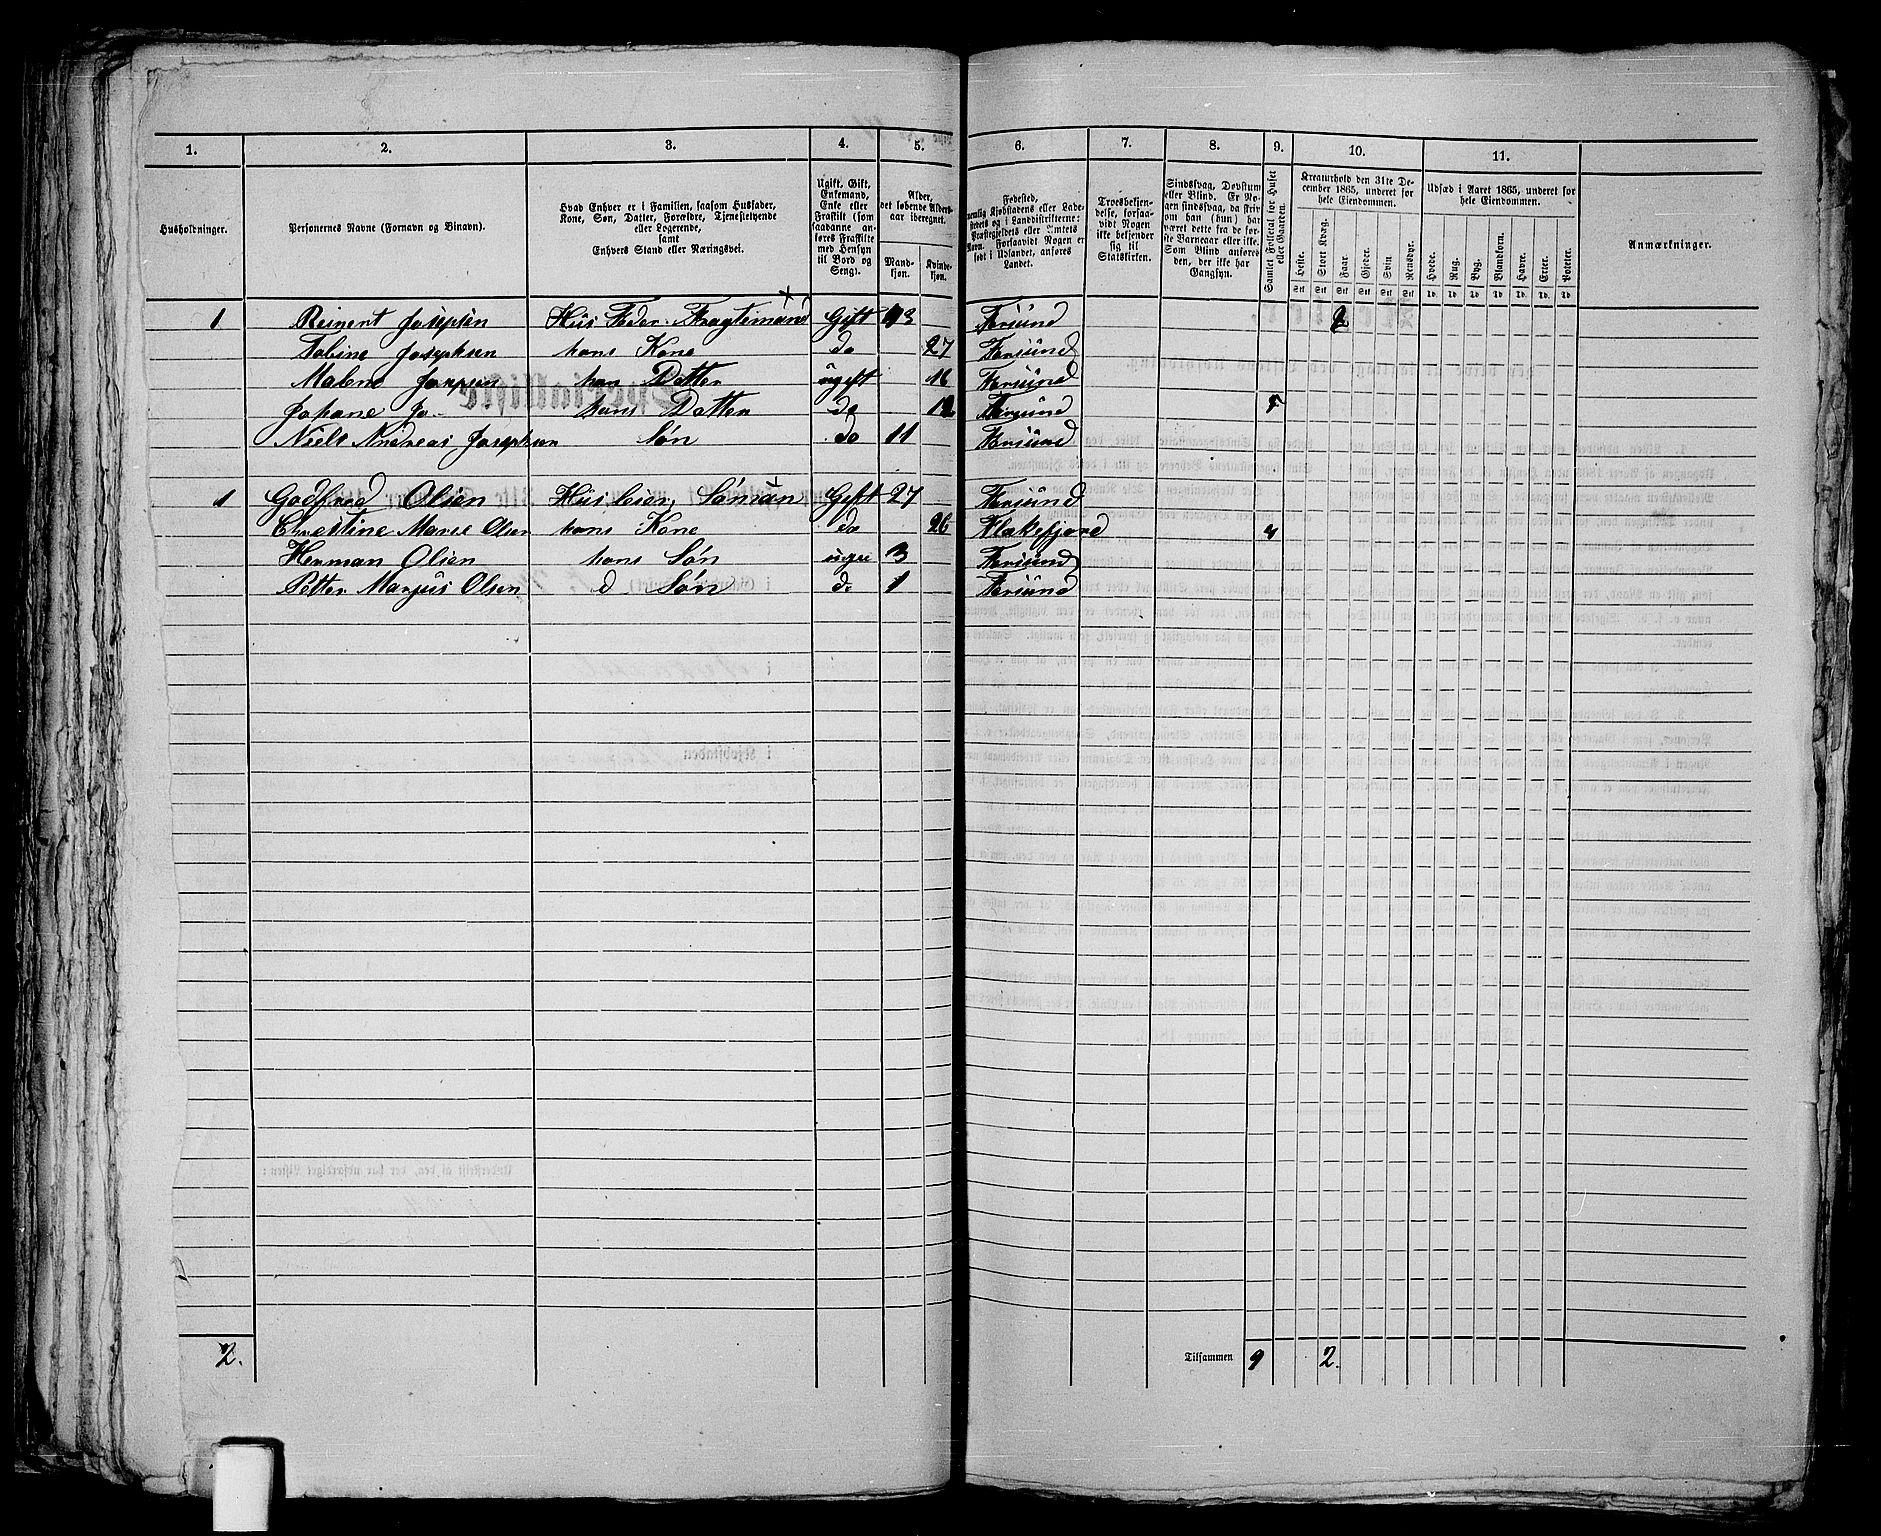 1. 2. 3. 4. 5. 6. 7. 8. 9. 10. 11.
Husholdninger.
Personernes Navne (Fornavn og Binavn).
Hvad Enhver er i Familien, saasom Husfader,
Kone, Søn, Datter, Forældre, Tjenestetyende
eller Logerende,
samt
Enhvers Stand eller Næringsvei.
Ugift, Gift,
Enkemand,
Enke eller
Fraskilt (som
saadanne an-
føres Fraskilte
med Hensyn
til Bord og
Seng).
Alder,
det løbende Alders-
aar iberegnet.
Mand-
kjøn.
Kvinde-
kjøn.
Fødested,
nemlig Kjøbstadens eller Lade-
stedets og i Landdistrikterne:
Præstegjeldets eller Amtets
Navn. Forsaavidt Nogen er
født i Udlandet, anføres
Landet.
Troesbekjen-
delse, forsaa-
vidt Nogen
ikke bekjender
sig til
Statskirken.
Sindssvag, Døvstum
eller Blind. Er No-
gen sindssvag, da skri-
ves, om han (hun) har
været dette fra de før-
ste Barneaar eller ikke.
Som Blind anføres
den, der ikke har
Gangsyn.
Samlet Folketal for Huset
eller Gaarden.
Kreaturhold den 31te De-
cember 1865, underet for
hele Eiendommen.
Heste. Stort Kvæg. Faar. Gjeder. Svin. Rensdyr.
Stk Stk Stk Stk Stk Stk
Udsæd i Aaret 1865, underet for
hele Eiendommen.
Hvede. Rug. Byg. Blandkorn. Havre. Erter. Poteter.
Td. Td. Td. Td. Td. Td. Td.
Anmærkninger.
1 Reinert Josepsen Hus Fader Fragtemand Gift 43 Farsund 2
Tobine Josephsen hans Kone do 27 Farsund
Malene Josepsen hans Datter ugift 16 Farsund
Johane Jo hans Datter do 12 Farsund 5
Niels Andreas Josephsen Søn do 11 Farsund
1 Godfred Olsen Huseier, Søman Gift 27 Farsund
Christine Marie Olsen hans Kone do 26 Flakefjord 4
Herman Olsen hans Søn ugi 3 Farsund
Petter Marjus Olsen d Søn do 1 Farsund
2. Tilsammen 9 2.